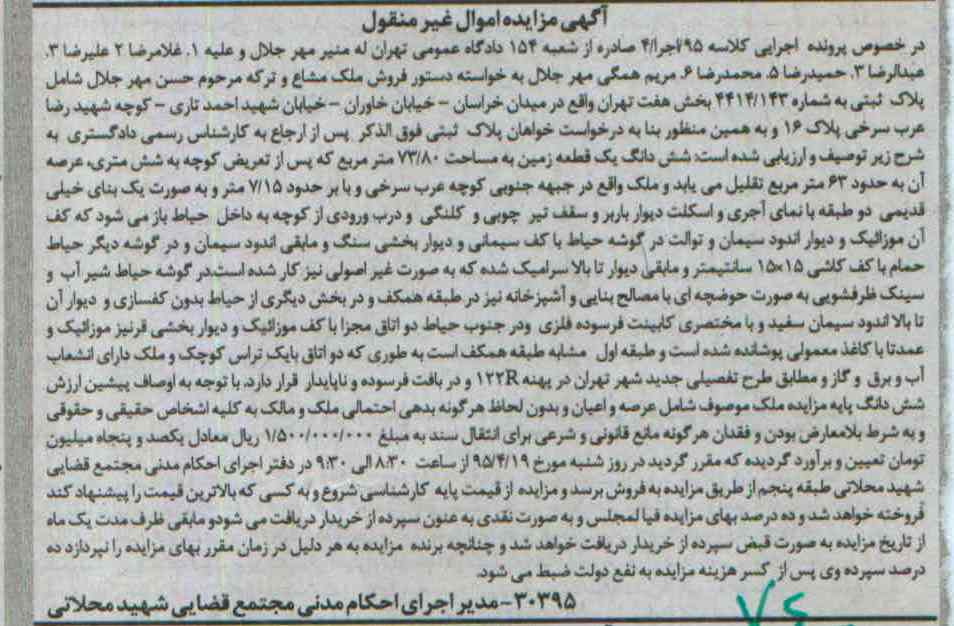 آگهی مزایده اموال غیر منقول
در خصوص پرونده اجرایی کلاسه ۹۵/اجرا/۴ صادره از شعبه ۱۵۴ دادگاه عمومی تهران له منیر مهر جلال و علیه ۱. غلامرضا ۲ علیرضا ۳.
عبدالرضا ۳. حمیدرضا ۵. محمدرضا ۶. مریم همگی مهر جلال به خواسته دستور فروش ملک مشاع و ترکه مرحوم حسن مهر جلال شامل
پلاک ثبتی به شماره ۴۴۱۴/۱۴۳ بخش هفت تهران واقع در میدان خراسان - خیابان خاوران - خیابان شهید احمد تاری - کوچه شهید رضا
عرب سرخی پلاک ۱۶ و به همین منظور بنا به درخواست خواهان پلاک ثبتی فوق الذکر پس از ارجاع به کارشناس رسمی دادگستری به
شرح زیر توصیف و ارزیابی شده است: شش دانگ یک قطعه زمین به مساحت ۷۳/۸۰ متر مربع که پس از تعریض کوچه به شش متری، عرصه
آن به حدود ۶۳ متر مربع تقلیل می یابد و ملک واقع در جبهه جنوبی کوچه عرب سرخی و با بر حدود ۷/۱۵ متر و به صورت یک بنای خیلی
قدیمی دو طبقه با نمای آجری و اسکلت دیوار باربر و سقف تیر چوبی و کلنگی و درب ورودی از کوچه به داخل حیاط باز می شود که کف
آن موزائیک و دیوار اندود سیمان و توالت در گوشه حیاط با کف سیمانی و دیوار بخشی سنگ و مابقی اندود سیمان و در گوشه دیگر حیاط
حمام با کف کاشی ۱۵×۱۵ سانتیمتر و مابقی دیوار تا بالا سرامیک شده که به صورت غیر اصولی نیز کار شده است.در گوشه حیاط شیر آب و
سینک ظرفشویی به صورت حوضچه ای با مصالح بنایی و آشپزخانه نیز در طبقه همکف و در بخش دیگری از حیاط بدون کفسازی و دیوار آن
تا بالا اندود سیمان سفید و با مختصری کابینت فرسوده فلزی ودر جنوب حیاط دو اتاق مجزا با کف موزائیک و دیوار بخشی قرنیز موزائیک و
عمدتا با کاغذ معمولی پوشانده شده است و طبقه اول مشابه طبقه همکف است به طوری که دو اتاق بایک تراس کوچک و ملک دارای انشعاب
آب و برق و گاز و مطابق طرح تفصیلی جدید شهر تهران در پهنه ۱۲۲R و در بافت فرسوده و ناپایدار قرار دارد. با توجه به اوصاف پیشین ارزش
شش دانگ پایه مزایده ملک موصوف شامل عرصه و اعیان و بدون لحاظ هر گونه بدهی احتمالی ملک و مالک به کلیه اشخاص حقیقی و حقوقی
و به شرط بلامعارض بودن و فقدان هرگونه مانع قانونی و شرعی برای انتقال سند به مبلغ ۱/۵۰۰/۰۰۰/۰۰۰ ریال معادل یکصد و پنجاه میلیون
تومان تعیین و برآورد گردیده که مقرر گردید در روز شنبه مورخ ۹۵/۴/۱۹ از ساعت ۸:۳۰ الی ۹:۳۰ در دفتر اجرای احکام مدنی مجتمع قضایی
شهید محلاتی طبقه پنجم از طریق مزایده به فروش برسد و مزایده از قیمت پایه کارشناسی شروع و به کسی که بالاترین قیمت را پیشنهاد کند
فروخته خواهد شد و ده درصد بهای مزایده فیا لمجلس و به صورت نقدی به عنون سپرده از خریدار دریافت می شودو مابقی ظرف مدت یک ماه
از تاریخ مزایده به صورت قبض سپرده از خریدار دریافت خواهد شد و چنانچه برنده مزایده به هر دلیل در زمان مقرر بهای مزایده را نپردازد ده
درصد سپرده وی پس از کسر هزینه مزایده به نفع دولت ضبط می شود.
۳۰۳۹۵-مدیر اجرای احکام مدنی مجتمع قضایی شهید محلاتی